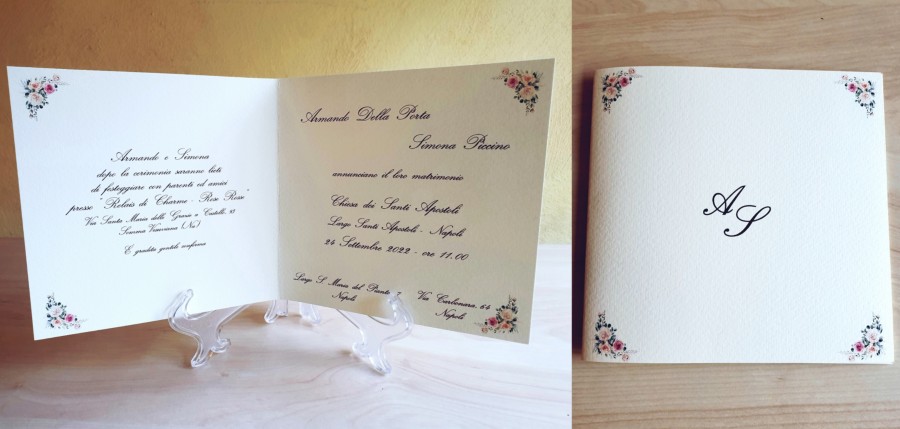 Armando e Simona
dopo la cerimonia saranno lieti
di festeggiare con parenti ed amici
presso " Relais di Charme - Rose Rosse "
Via Santa Maria delle Grazie a Castello, 18
Somma Vesuviana (Na)
E' gradita gentile conferma
Armando Della Porta
Simona Piccino
annunciano il loro matrimonio
Chiesa dei Santi Apostoli
Largo Santi Apostoli - Napoli
24 Settembre 2022 - ore 11.00
Largo S. Maria del Pianto
Napoli
Via Carbonara, 64
Napoli
A S